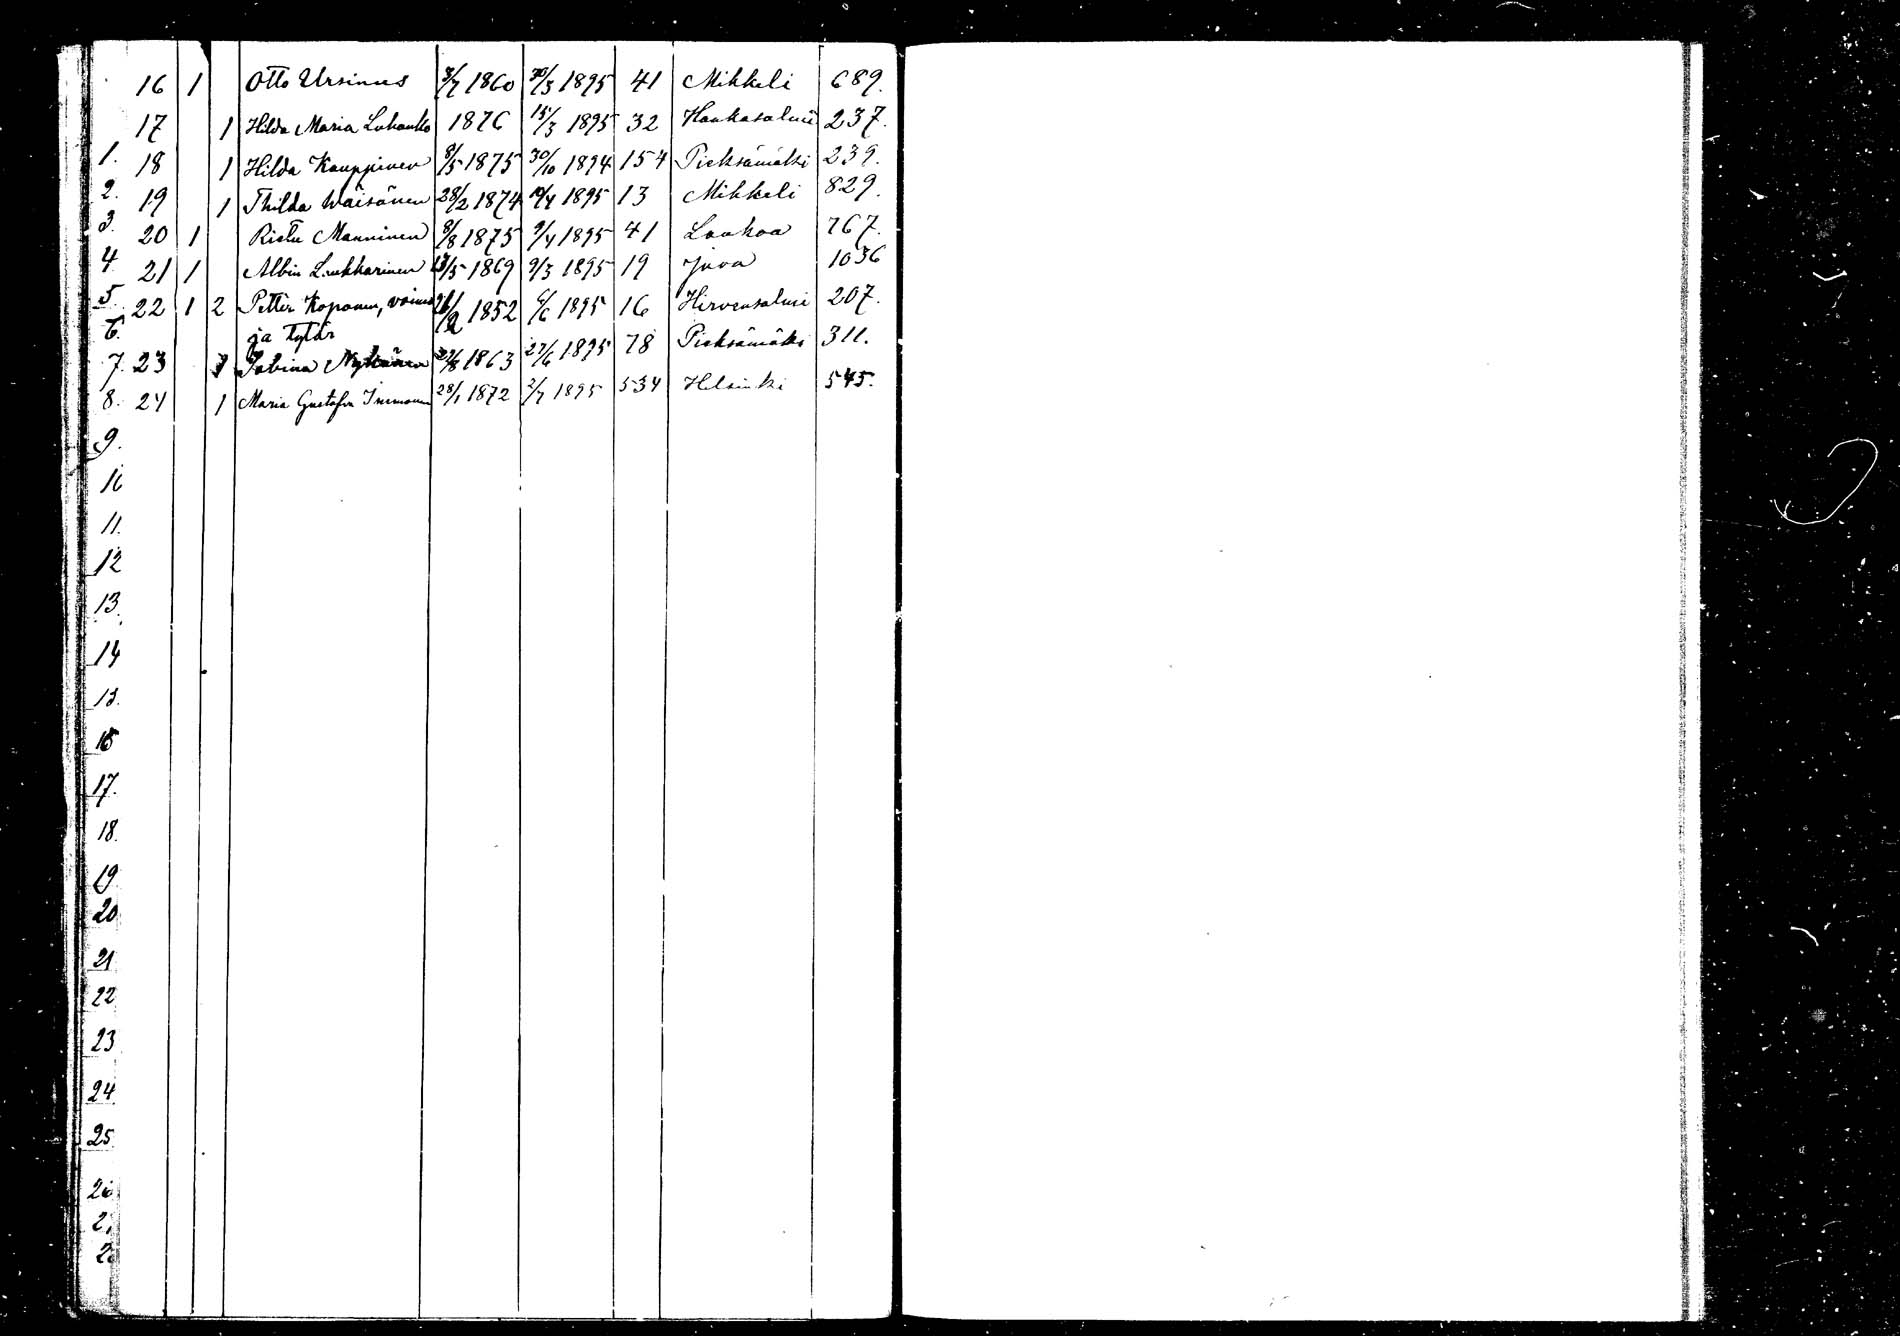 16 1 Otto Ursinus 3/7 1860 30/3 1895 41 Mikkeli 689.
17 1 Hilda Maria Luhanko 1876 15/3 1895 32 Hankasalmi 237.
1. 18 1 Hilda Kauppinen 8/5 1875 30/10 1894 154 Pieksämäki 239.
2. 19 1 Thilda Wäisänen 28/2 1874 1895 13 Mikkeli 829.
3. 20 1 Manninen 8/8 1875 9/4 1895 41 Laukaa 767.
4. 21 1 Albin Lukkarinen 1869 9/3 1895 19 Juva 1036
5. 22 1 2 Petter Koponen, vaimo 1852 1895 16 Hirvensalmi 207.
6. ja tytär
7. 23 1 Sabina Nykänen 1863 27/6 1895 78 Pieksämäki 311.
8. 24 1 Maria Gustafva Immonen 28/1 1872 2/7 1895 534 Helsinki 545.
9.
10
11.
12
13.
14
15.
16
17.
18.
19
20
21
22
23
24
25
26